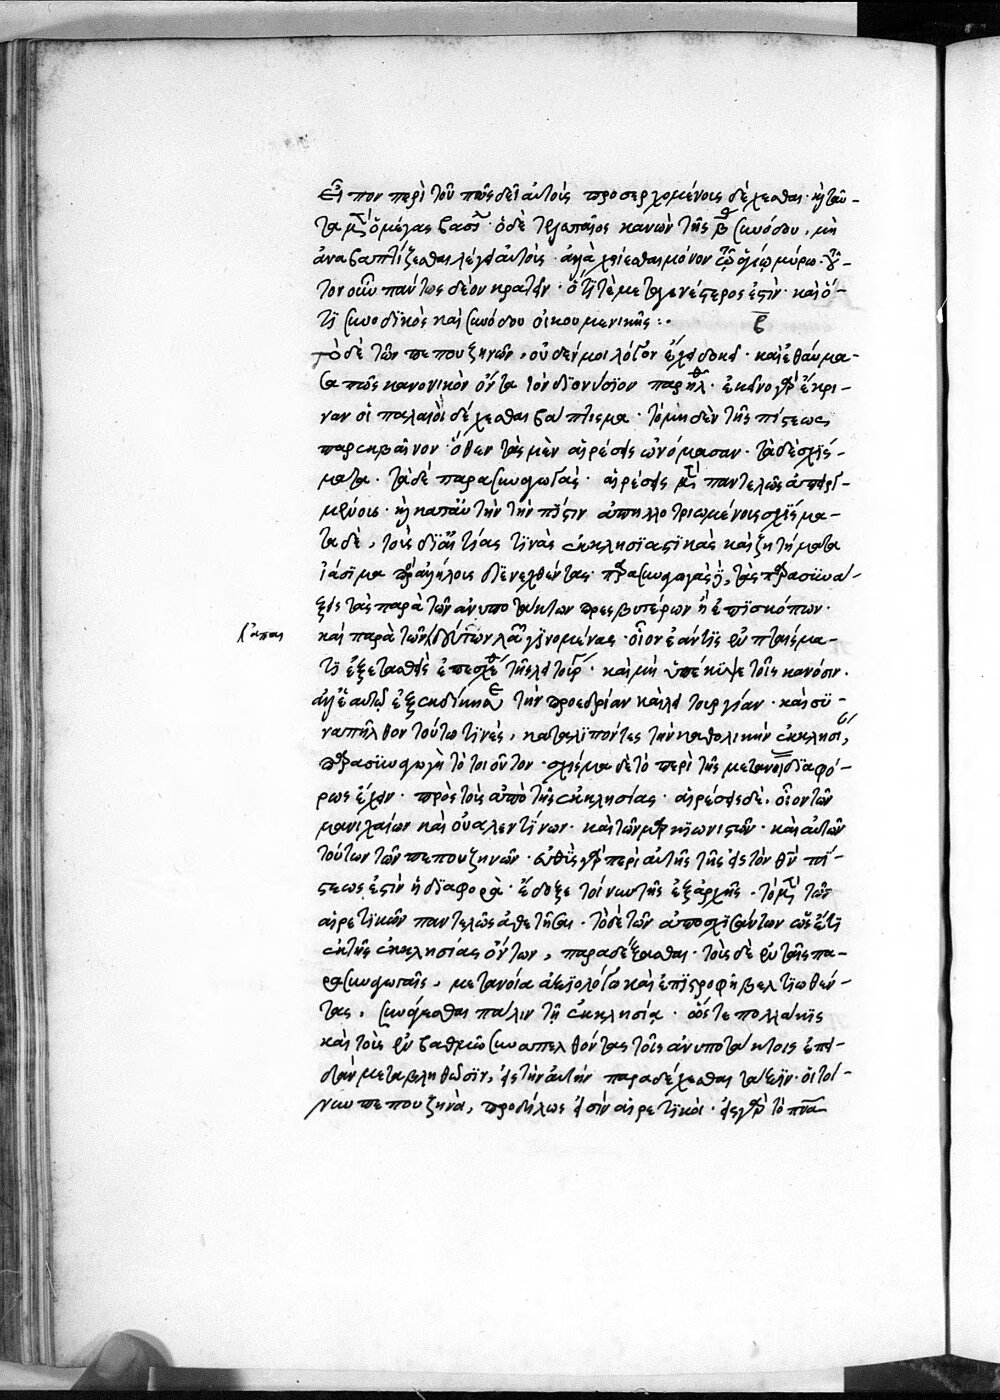 εἶπον περὶ τοῦ πῶς δεῖ αὐτοὺς προσερχομένους δέχεσθαι· καὶ ταῦ-
τα μὲν ὁ μέγας βασί· ὁ δὲ κανὼν τῆς β συνόδου, μὴ
ἀναβαπτίζεσθαι λέγει αὐτοὺς· ἀλλὰ χρίεσθαι μόνον τῷ ἁγίῳ μύρῳ·
τον οὖν πάντως δέον κρατεῖν· ὅτι τὲ μεταγενέστερος ἐστὶν· καὶ ὅ-
τι συνοδικὸς καὶ συνόδου οἰκουμενικῆς :·
τὸ δὲ τῶν πεπουζηνῶν, οὐδένα μοι λόγον ἔχειν δοκεῖ· καὶ ἐθαύμα-
σα πῶς κανονικὸν ὄντα τὸν διονύσιον παρῆλθ· ἐκεῖνο γὰρ ἔκρι-
ναν οἱ παλαιοὶ δέχεσθαι βάπτισμα· τὸ μηδὲν τῆς πίστεως
παρεκβαῖνον· ὅθεν τὰς μὲν αἱρέσεις ὠνόμασαν· τὰ δὲ σχίσ-
ματα· τὰς δὲ παρασυναγωγάς· αἱρέσεις μὲν παντελῶς ἀπερρηγ-
μένους· καὶ κατ' αὐτὴν τὴν πίστιν ἀπηλλοτριωμένους σχίσμα-
τα δὲ, τοὺς δι' αἰτίας τινὰς ἐκκλησιαστικὰς καὶ ζητήματα
ἰάσιμα πρὸς ἀλλήλους διενεχθέντας· παρασυναγωγὰς δὲ, τὰς παρασυνά-
ξεις τὰς παρὰ τῶν ἀνυποτάκτων πρεσβυτέρων ἢ ἐπισκόπων·
Λάπαι
καὶ παρὰ τῶν λαῶν γινομένας· οἷον ἐάν τις ἐν πταίσμα-
τι ἐξετασθεὶς ἐπεσχέθη τῆς λειτουργ· καὶ μὴ ὑπέκυψε τοῖς κανόσιν·
ἀλλ' ἑαυτῷ ἐξεδίκησε τὴν προεδρίαν καὶ λειτουργίαν· καὶ συ-
ναπῆλθον τούτω τινὲς, καταλιπόντες τὴν καθολικὴν ἐκκλησί,
παρασυναγωγὴ τὸ τοιοῦτον· σχίσμα δὲ τὸ περὶ τῆς μετανοί διαφό-
ρως ἔχειν· πρὸς τοὺς ἀπὸ τῆς ἐκκλησίας· αἱρέσεις δὲ, οἷον τῶν
μανιχαίων καὶ οὐαλεντίνων· καὶ τῶν μαρκιωνιστῶν· καὶ αὐτῶν
τούτων τῶν πεπουζηνῶν· εὐθὺς γὰρ περὶ αὐτῆς τῆς εἰς τὸν θν πί-
στεως ἐστὶν ἡ διαφορὰ· ἔδοξε τοίνυν τοῖς ἐξ ἀρχῆς· τὸ μὲν τῶν
αἱρετικῶν παντελῶς ἀθετῆσαι· τὸ δὲ τῶν ἀποσχισάντων ὡς ἔτι
ἐκ τῆς ἐκκλησίας ὄντων, παραδέξασθαι· τοὺς δὲ ἐν ταῖς πα-
ρασυναγωγαῖς, μετανοία ἀξιολόγω καὶ ἐπιστροφῆ βελτιωθέν-
τας, συνάγεσθαι πάλιν τῇ ἐκκλησίᾳ· ὥστε πολλάκις
καὶ τοὺς ἐν βαθμῶ συναπελθόντας τοῖς ἀνυποτάκτοις ἐπει-
δὰν μεταμεληθῶσιν, εἰς τὴν αὐτὴν παραδέχεσθαι τάξιν· οἱ τοί-
νυν πεπουζηνοὶ, προδήλως εἰσὶν αἱρετικοὶ· εἰς γὰρ τὸ πνα